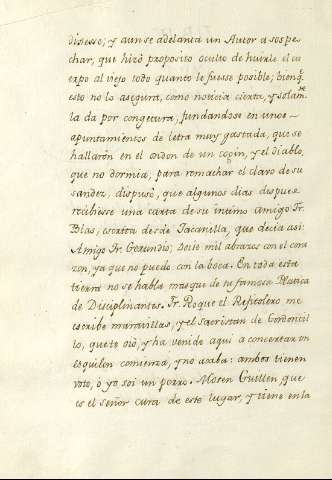 diesse; y aun se adelanta un Autor a sospe
char, que hizo proposito oculto de huirle el cu
erpo al viejo todo quanto le fuesse posible; bienq.
esto no lo asegura, como noticia cierta, y solam.te
la da por congetura, fundandose en unos
apuntamientos de letra muy gastada, que se
hallaron en el ondon de un cofin, y el diablo,
que no dormia, para remachar el clavo de su
sandez, dispuso, que algunos dias despues
recibiesse una carta de su intimo amigo Fr.
Blas, escrita desde Jacarilla, que decia asi:
Amigo Fr. Gerundio; Doite mil abrazos con el cora
zon, ya que no puedo con la boca. En toda esta
tierra no se habla mas que de tu famosa Platica
de Disciplinantes. Fr. Roque el Refitolero me
escribe maravillas, y el sacristan de Gordoncil
lo, que te oió, y ha venido aqui a concertar un
esquilon comienza, y no acaba: ambos tienen
voto, ó yo soi un porro. Mosen Guillen, que
es el señor cura de este lugar, y tiene en la